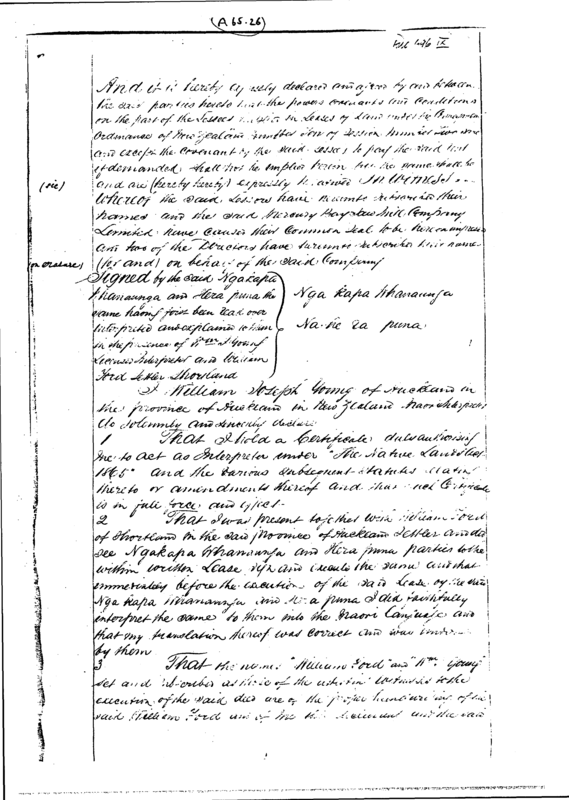 (A 65-26)
IX
And it is hereby declared and agreed by and between
the said parties hereto that the powers covenants and conditions
on the part of the Lessees implied in Leases of Land under the
Ordinance of New Zealand of Session Number Two
and except the Covenant by the said Lessees to pay the said rent
if demanded shall not be implied herein but the same shall be
(sic)
and are (hereby hereby) expressly In Witness
Whereof the said Lessors have hereunto subscribed their
names and the said Mercury Bay Saw Mill Company
Limited have caused their Common Seal to be
and two of the Directors have hereunto subscribed their names
(on erasure)
(for and) on behalf of the said Company
Signed by the said Ngakapa
Whanaunga and Hera puna the
same having first been read over
interpreted and explained to them
in the presence of Wm J Young
Licensed Interpreter and William
Ford Settler Shortland
Nga Kapa Whanaunga
Na puna
I William Joseph Young of Auckland in
the province of Auckland in New Zealand
do solemnly and sincerely declare
1 That I hold a Certificate authorising
me to act as Interpreter under "The Native Lands Act
1865" and the various subsequent statutes
thereto or amendments thereof and that such Certificate
is in full force and effect.
2 That I was present together with William Ford
of Shortland in the said province of Auckland Settler and did
see Ngakapa Whanaunga and Hera puna parties to the
within written Lease sign and execute the same and that
immediately before the execution of the said Lease by the said
Nga Kapa Whanaunga and Hera puna I did faithfully
interpret the same to them into the Maori Language and
that my translation thereof was correct and was
by them
3 That the names "William Ford" and "Wm Young"
set and as those of the witnesses to the
execution of the said deed are of the proper handwriting of
said William Ford and of me this and the said